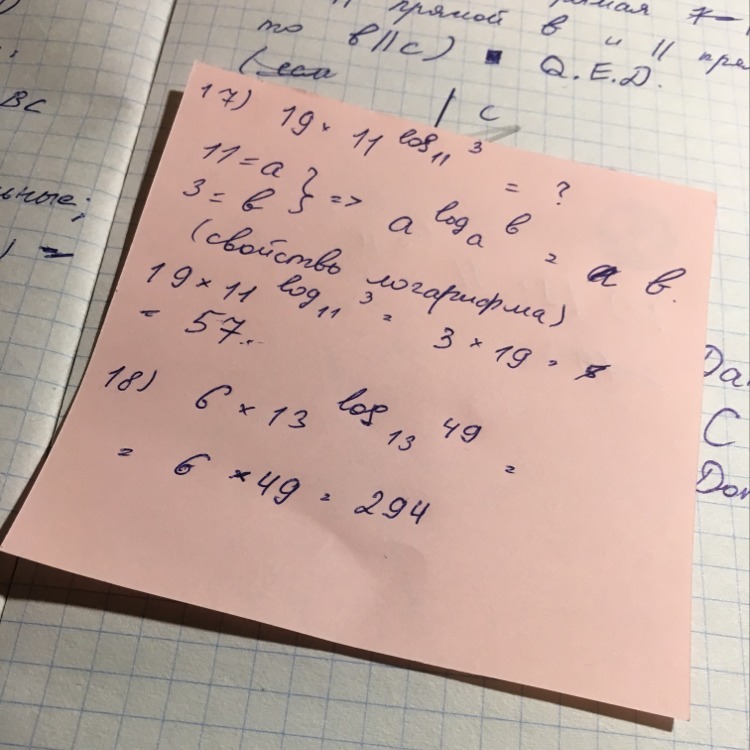 прямой в и || пря
то в||с) ■ Q.E.D.
(если
| с
ВС
ьные;
17) 19 × 11 log₁₁ 3 = ?
11 = a } => a logₐ b = b.
3 = b
(свойство логарифма)
19 × 11 log₁₁ 3 = 3 × 19 =
= 57.
18) 6 × 13 log₁₃ 49 =
= 6 × 49 = 294
Dа
С